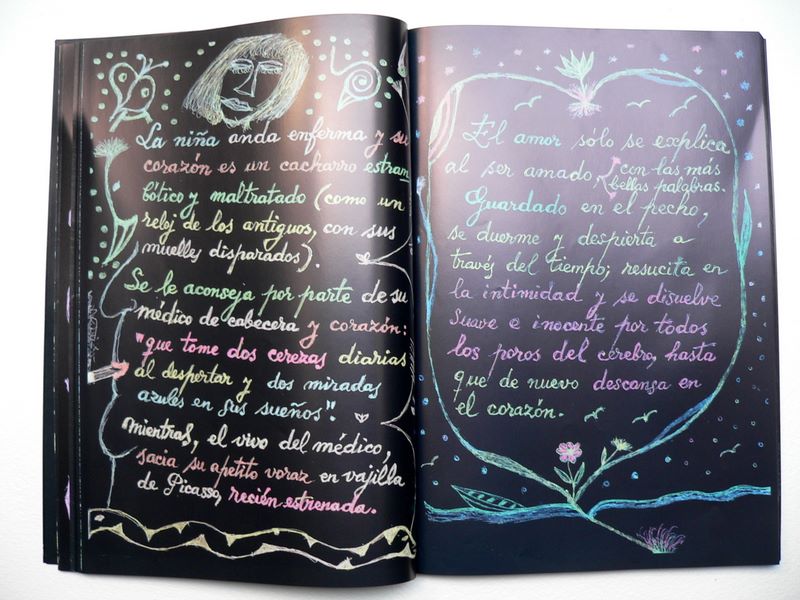 La niña anda enferma y su
corazón es un cacharro estram
bótico y maltratado (como un
reloj de los antiguos, con sus
muelles disparados).
Se le aconseja por parte de su
médico de cabecera y corazón:
"que tome dos cerezas diarias
al despertar y dos miradas
azules en sus sueños".
mientras, el vivo del médico,
sacia su apetito voraz en vajilla
de Picasso, recién estrenada.
El amor sólo se explica
al ser amado, con las más
bellas palabras.
Guardado en el pecho,
se duerme y despierta a
través del tiempo; resucita en
la intimidad y se disuelve
suave e inocente por todos
los poros del cérebro, hasta
que de nuevo descansa en
el corazón.